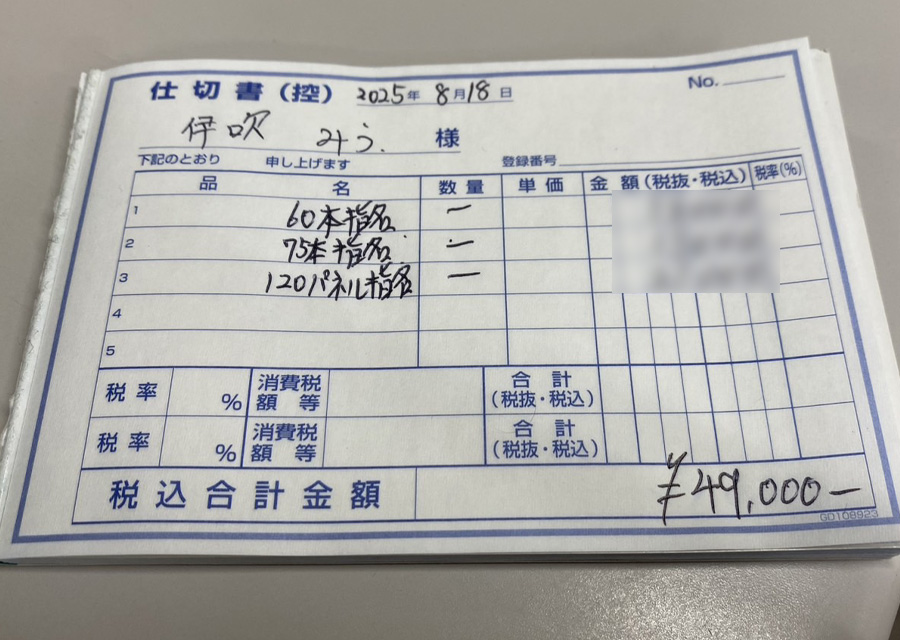 仕切書(控) 2025年 8月18日 No.
伊吹 みう. 様
下記のとおり 申し上げます 登録番号
品名 数量 単価 金額(税抜・税込) 税率(%)
1 60本指名 一
2 75本指名 一
3 120パネル指名 一
4
5
税率 % 消費税額等 合計(税抜・税込)
税率 % 消費税額等 合計(税抜・税込)
税込合計金額 ¥49,000-
GD108923